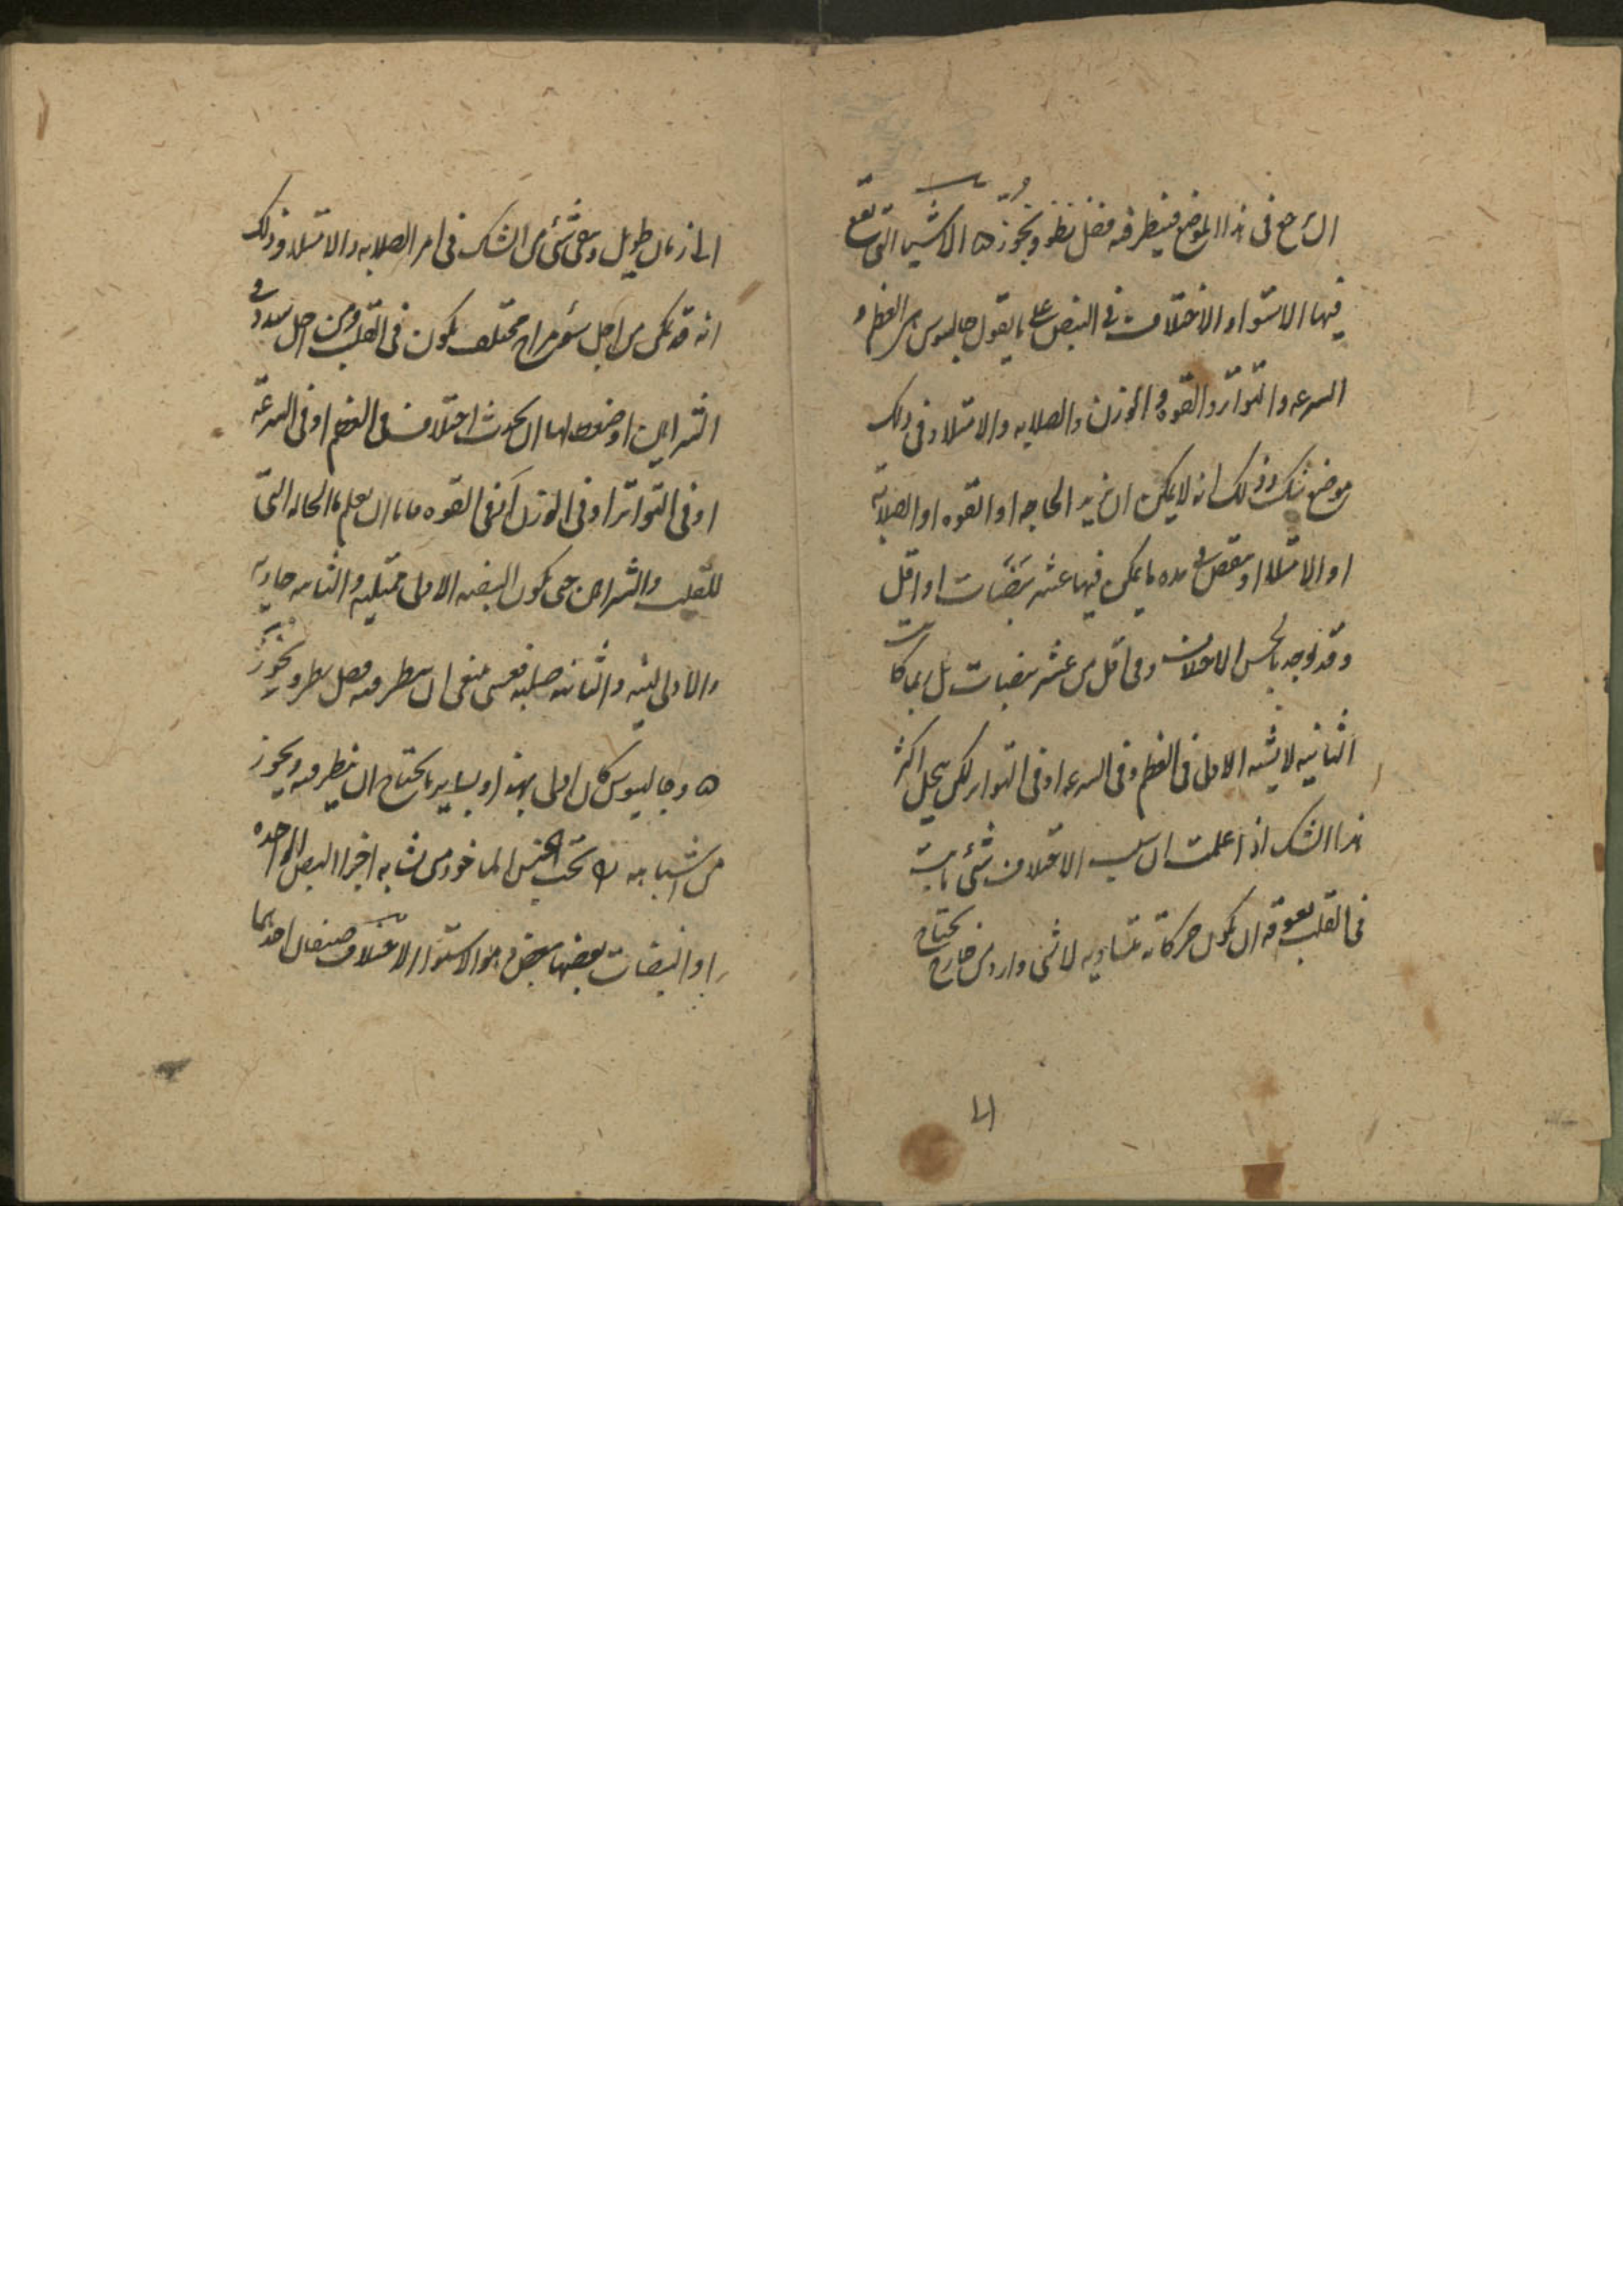 ان نرجع فى هذا الموضع فينظر فيه فضل نظر ويحرر ه الاشيا التى تقع
فيها الاستوا والاختلاف فى النبض على ما يقول جالينوس هى العظم و
السرعه والتواتر والقوه و الوزن والصلابه والامتلا وفى ذلك
موضع شك وذلك انه لا يمكن ان تزيد الحاجه او القوه او الصلابه
او الامتلا او ينقص فى مده ما يمكن فيها عشر نبضات او اقل
وقد نوجد بالحس الاختلاف وفى اقل من عشر نبضات بل ربما كانت
الثانيه لا يشبه الاولى فى العظم وفى السرعه او فى التواتر لكن يحل اكثر
هذا الشك اذا علمت ان سبب الاختلاف شئ ثابت
فى القلب يعوقه ان يكون حركاته متساويه لا شى وارد من خارج يحتاج
الى زمان طويل وبقى شئ من الشك فى امر الصلابه والامتلا وذلك
انه قد يمكن من اجل سؤ مزاج مختلف يكون فى القلب ومن اجل سدد فى
الشرايين او ضغط لها ان يحدث اختلاف فى العظم او فى السرعه
او فى التواتر او فى الوزن او فى القوه فاما ان يعلم بالحاله التى
للقلب والشرايين حتى يكون النبضه الاولى ممتليه والثانيه خاويه
والاولى لينه والثانيه صلبه فعسى ينبغى ان ينظر فيه فضل نظر ويحرر
ه وجالينوس كان اولى بهذا وبساير ما يحتاج ان ينظر فيه ويحرر
من اشباهه ه تحت الجنس الماخوذ من تشابه اجزا النبض الواحده
او النبضات بعضها ببعض وهو الاستوا والاختلاف صنفان احدهما